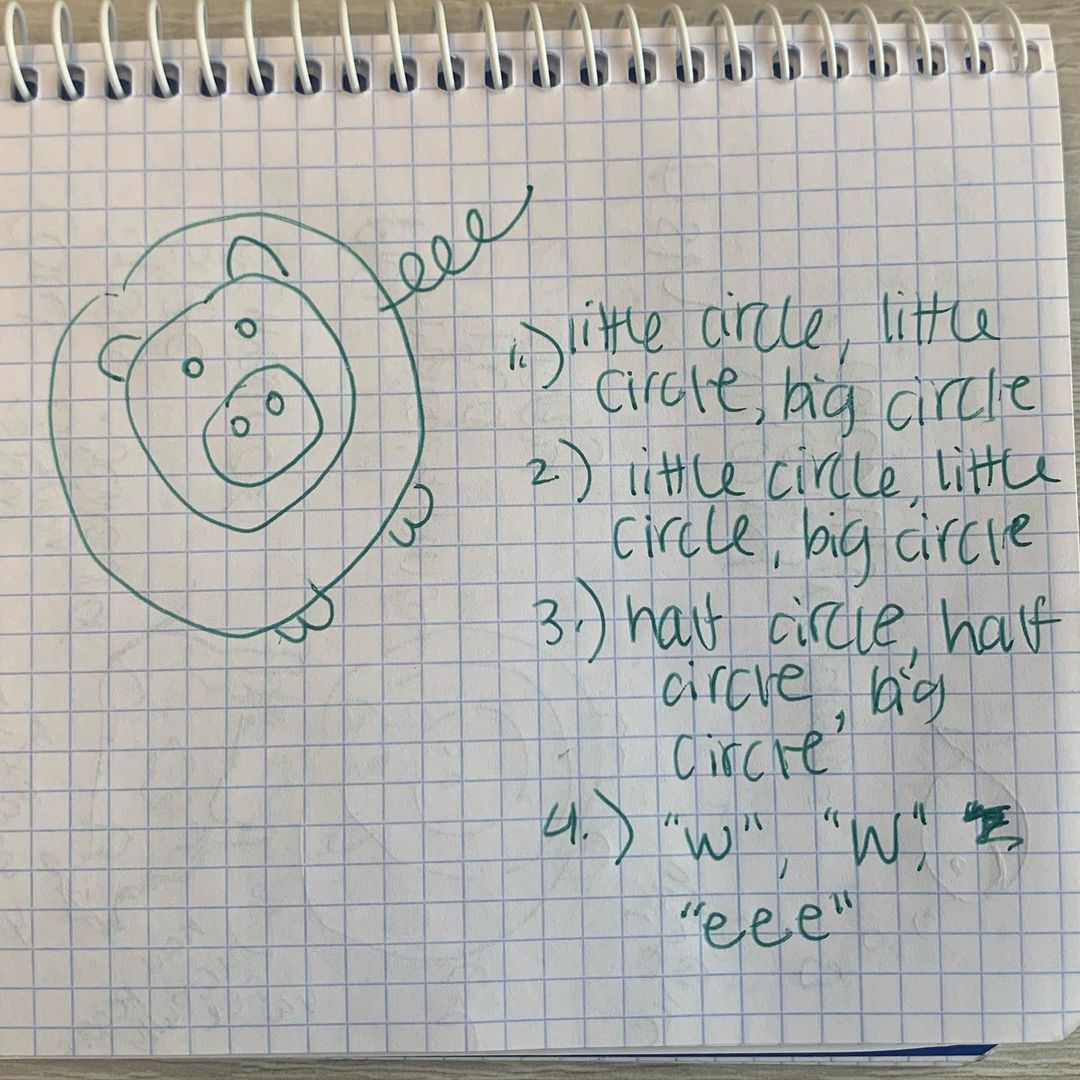 1.) little circle, little
circle, big circle
2.) little circle, little
circle, big circle
3.) half circle, half
circle, big
circle
4.) "w", "w",
"eee"